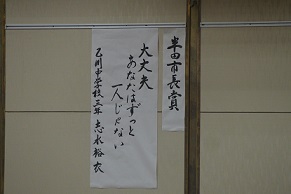 半田市長賞
大丈夫
あなたはずっと
一人じゃない
乙川中学校三年 志水裕衣